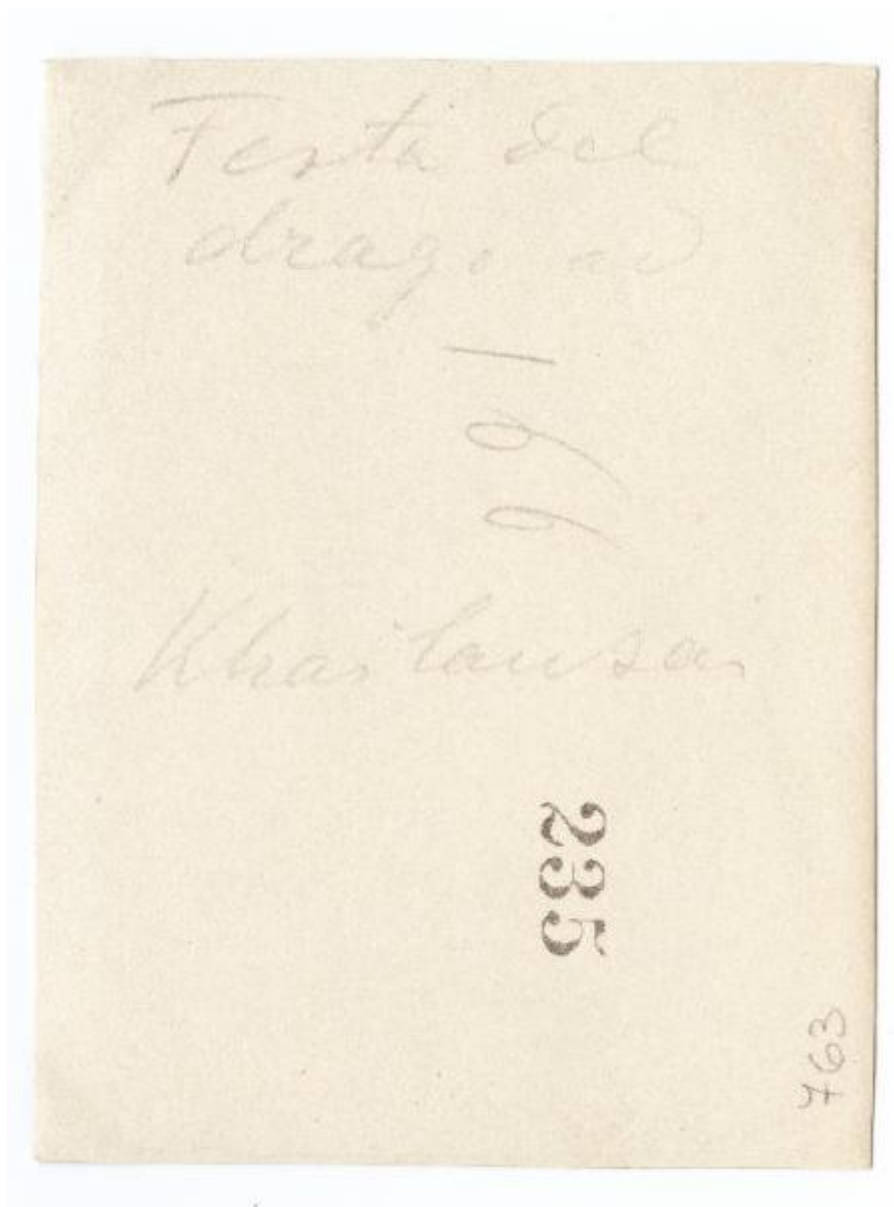 Festa del
drago ad
166
Khaitansa
235
763